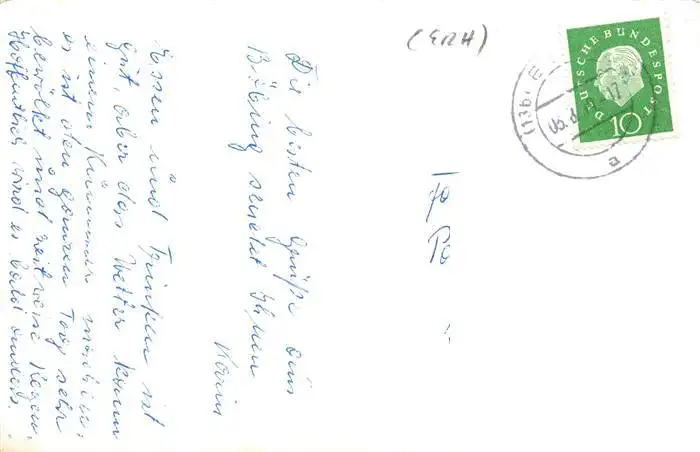 (ERH)
DEUTSCHE BUNDESPOST
10
(13b) E
a
Die besten Grüße aus
Bibing sendet Ihnen
Karin
Essen und Trinken ist
gut, aber das Wetter kann
einem Kummer machen,
es ist den ganzen Tag sehr
bewölkt und zeitweise Regen.
Hoffentlich wird es bald anders.